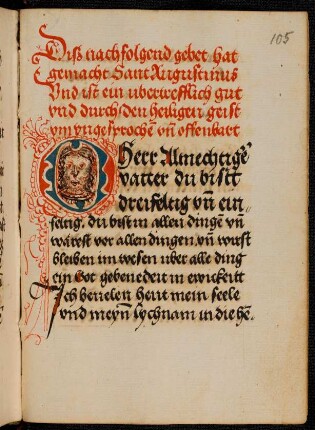 105
Diß nachfolgend gebet hat
gemacht Sant Augustinus
Vnd ist ein vbertrefflich gut
vnd durch den heiligen geist
ym yngesprochē vn̄ offenbart
O Herr Almechtigē
vatter du bistt
dreifeltig vn̄ ein
feltig, du bist in allen dingē vn̄
warest vor allen dingen, vn̄ wirst
bleiben im wesen vber alle ding
ein Got gebenedeit in ewickeitt
Ich beuelen heut mein seele
vnd meyn̄ lychnam in die hē